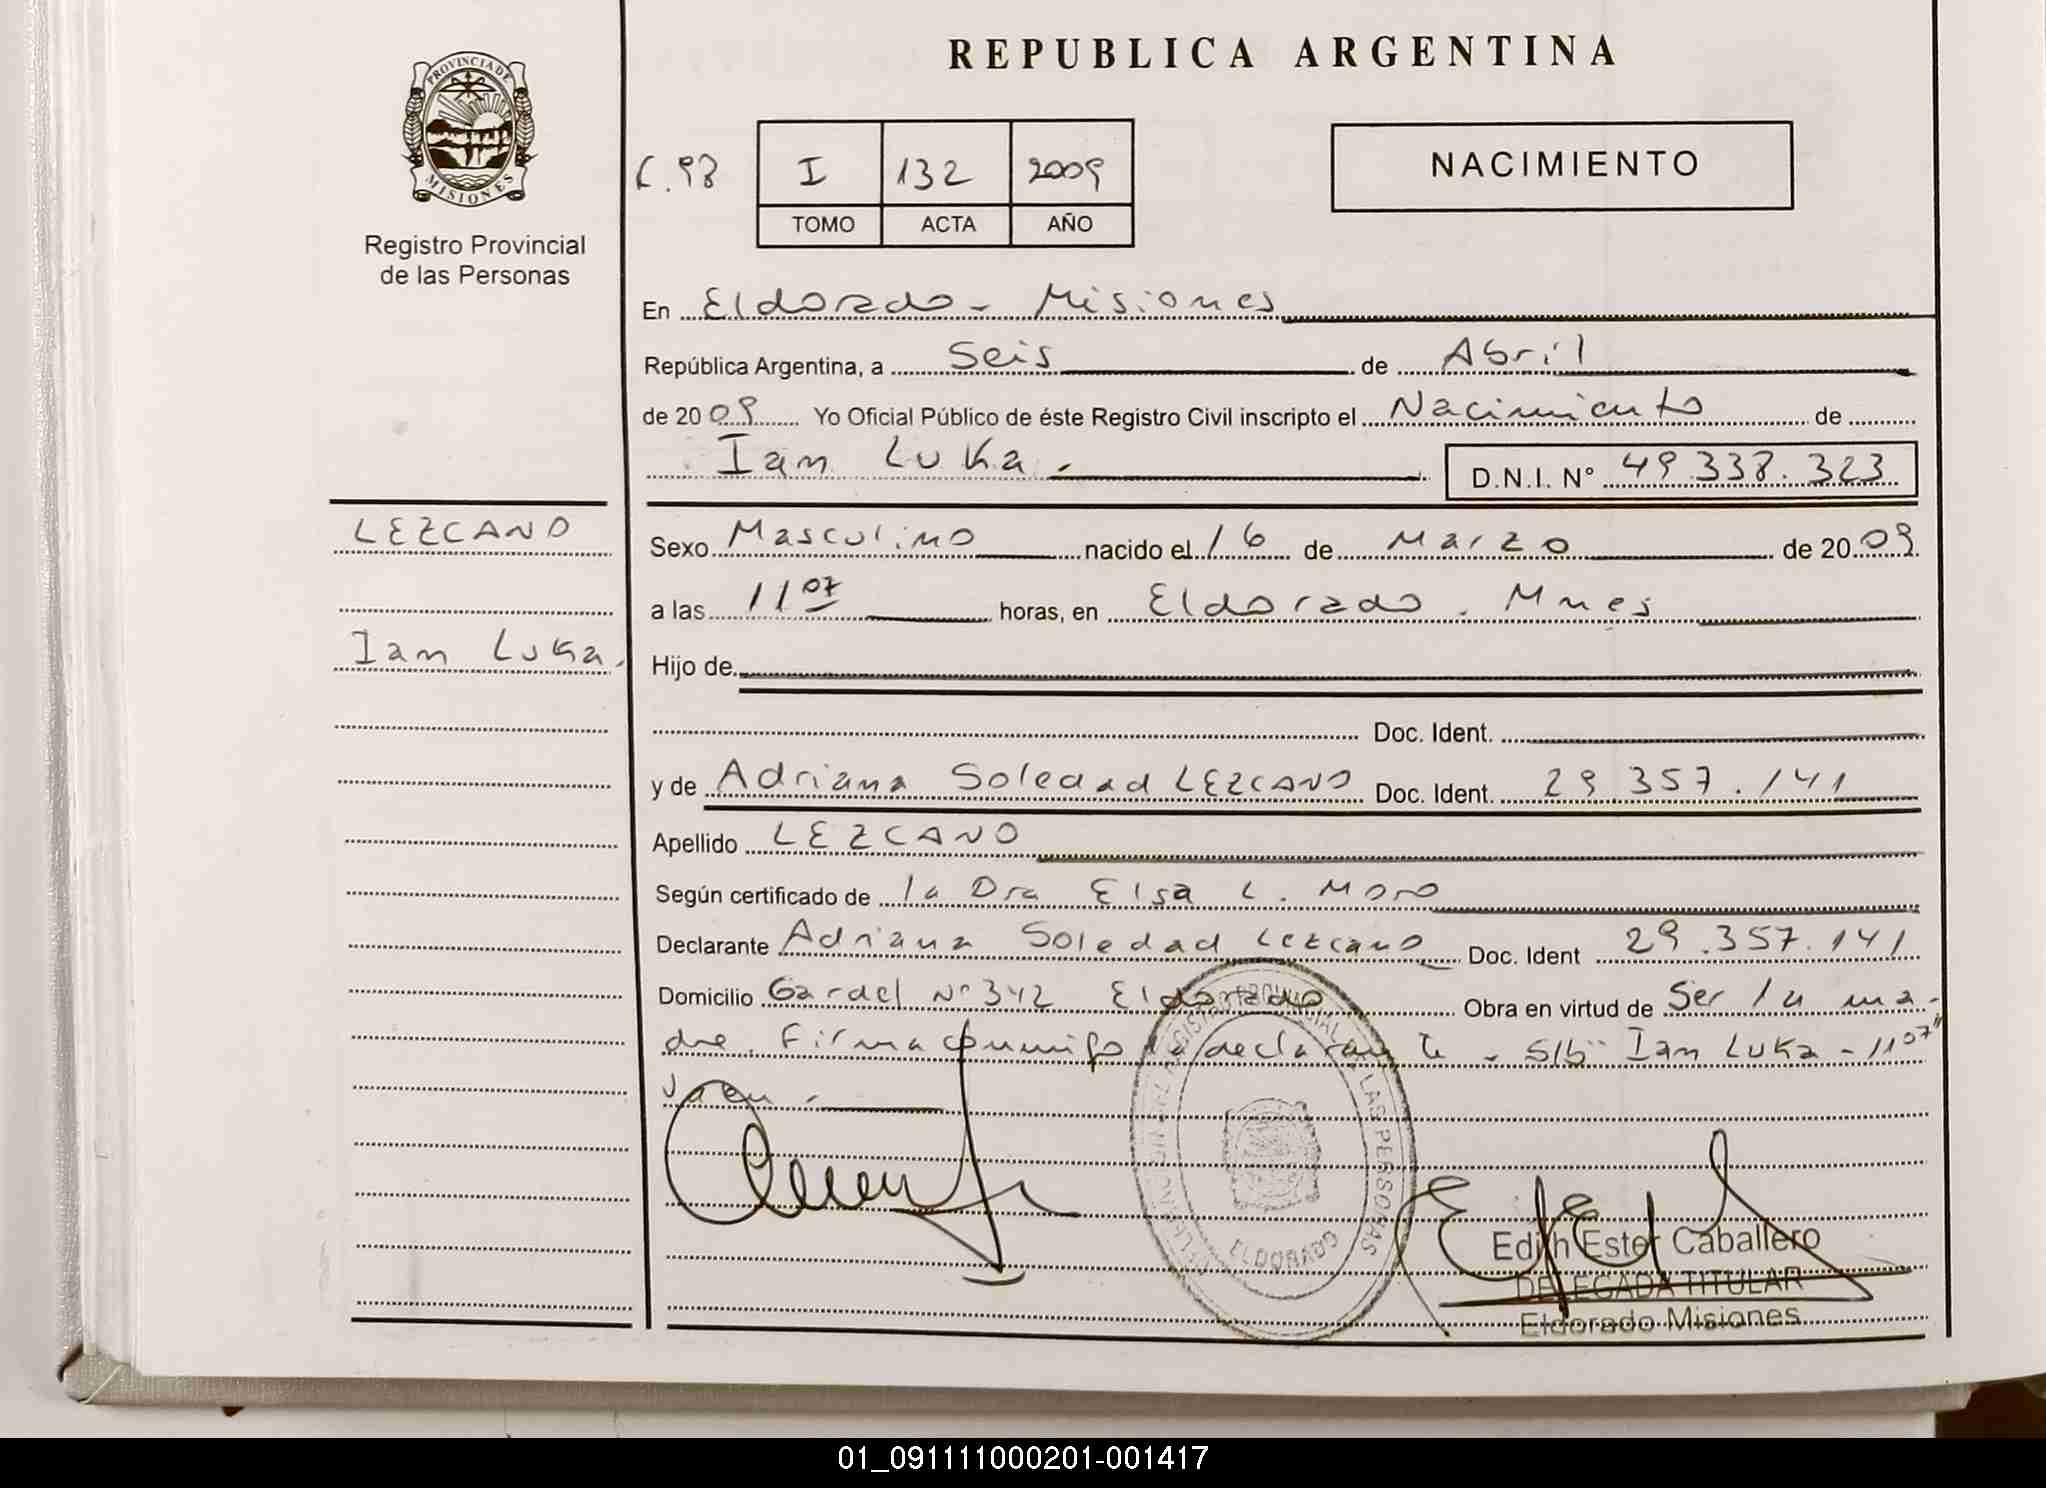 PROVINCIA DE
MISIONES
Registro Provincial
de las Personas
REPUBLICA ARGENTINA
I 132 2009
TOMO ACTA AÑO
NACIMIENTO
En Eldorado - Misiones
República Argentina, a Seis de Abril
de 2009 Yo Oficial Público de éste Registro Civil inscripto el Nacimiento de
Ian Luka. D.N.I. N° 49.338.323
LEZCANO
Ian Luka.
Sexo Masculino nacido el 16 de Marzo de 2009
a las 11 07 horas, en Eldorado. Mnes
Hijo de
Doc. Ident.
y de Adriana Soledad LEZCANO Doc. Ident. 29.357.141
Apellido LEZCANO
Según certificado de la Dra Elsa L. Moro
Declarante Adriana Soledad Lezcano Doc. Ident 29.357.141
Domicilio Gardel N° 342 Eldorado Obra en virtud de Ser la ma-
dre. Firma conmigo la declarante - S/b: Ian Luka - 11 07"
Valen.
REGISTRO PROVINCIAL DE LAS PERSONAS
ELDORADO
Edith Ester Caballero
DELEGADA TITULAR
Eldorado Misiones
01_091111000201-001417